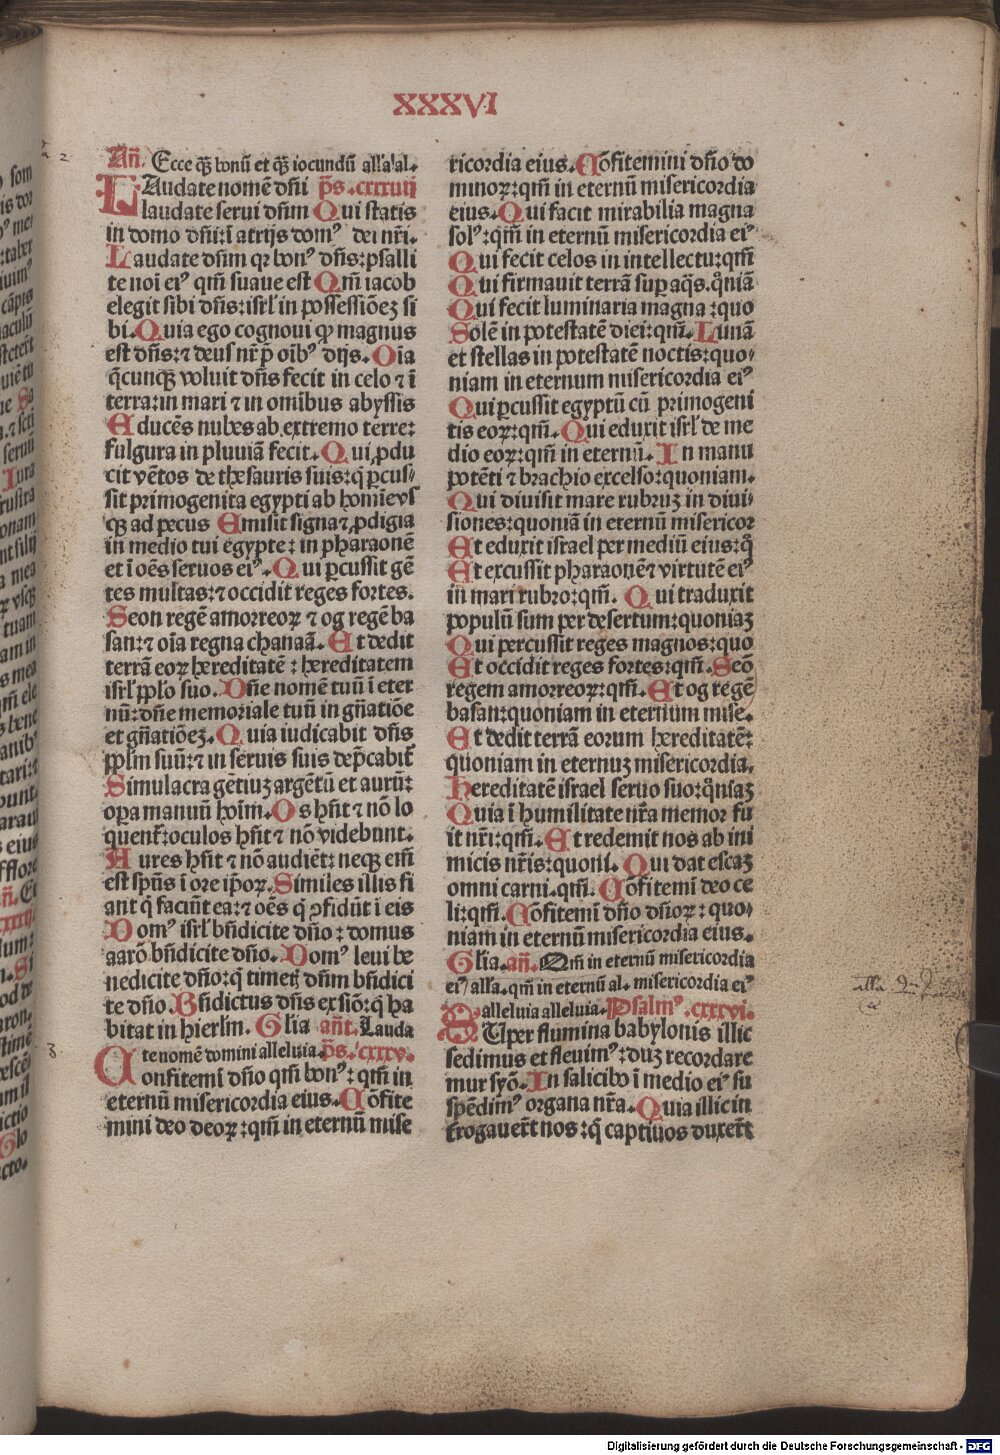 XXXVI
Añ. Ecce q̄ꝫ bonū et q̄ꝫ iocundū alłałal.
LAudate nomē dñi p̄s .cxxxiiij
laudate serui dñm Qui statis
in domo dñi:ī atrijs domꝰ dei nr̄i.
Laudate dñm qꝛ bonꝰ dñs:psalli
te noī eiꝰ qm̄ suaue est Qm̄ iacob
elegit sibi dñs:isrl̄ in possessiōeꝫ si
bi. Quia ego cognoui ꝙ magnus
est dñs:⁊ deus nr̄ p̄ oībꝰ dijs. Oīa
q̄cunqꝫ voluit dñs fecit in celo ⁊ ī
terra:in mari ⁊ in omībus abyssis
Educēs nubes ab extremo terre:
fulgura in pluuiā fecit. Qui ꝓdu
cit vētos de thesauris suis:q̇ ꝑcus⸗
sit primogenita egypti ab homīe vs
qꝫ ad pecus Emisit signa ⁊ ꝓdigia
in medio tui egypte: in pharaonē
et ī oēs seruos eiꝰ. Qui ꝑcussit gē
tes multas:⁊ occidit reges fortes.
Seon regē amorreoꝝ ⁊ og regē ba
san:⁊ oīa regna chanaā. Et dedit
terrā eoꝝ hereditatē : hereditatem
isrl̄ ꝓpl̄o suo. Dñe nomē tuū ī eter
nū:dñe memoriale tuū in gñatiōe
et gñatiōeꝫ. Quia iudicabit dñs
ꝓplm suū:⁊ in seruis suis dep̄cabit᷑
Simulacra gētiuꝫ argētū et aurū:
oꝑa manuū hoīm. Os hñt ⁊ nō lo
quent᷑:oculos hñt ⁊ nō videbunt.
Aures hñt ⁊ nō audiēt: neqꝫ em̄
est spūs ī ore ip̄oꝝ. Similes illis fi
ant q̇ faciūt ea:⁊ oēs q̇ ꝯfidūt ī eis
Domꝰ isrl̄ bn̄dicite dño : domus
aarō bn̄dicite dño. Domꝰ leui be
nedicite dño:q̇ timetꝭ dñm bn̄dici
te dño. Bn̄dictus dñs ex siō:q̇ ha
bitat in hierlm̄. Glia añt. Lauda
te nomē domini alleluia. p̄s. cxxxv.
Confitemī dño qm̄ bonꝰ: qm̄ in
eternū misericordia eius. Cōfite
mini deo deoꝝ:qm̄ in eternū mise
ricordia eius. Cōfitemini dño do
minoꝝ:qm̄ in eternū misericordia
eius. Qui facit mirabilia magna
solꝰ:qm̄ in eternū misericordia eiꝰ
Qui fecit celos in intellectu:qm̄
Qui firmauit terrā suꝑ aq̄s. q̊niā
Qui fecit luminaria magna:quo
Solē in potestatē diei:qm̄. Lunā
et stellas in potestatē noctis:quo⸗
niam in eternum misericordia eiꝰ
Qui ꝑcussit egyptū cū primogeni
tis eoꝝ:qm̄. Qui eduxit isrl̄ de me
dio eoꝝ:qm̄ in eternū. In manu
potēti ⁊ brachio excelso:quoniam.
Qui diuisit mare rubruꝫ in diui⸗
siones:quoniā in eternū misericor
Et eduxit israel per mediū eius:q̊
Et excussit pharaonē ⁊ virtutē eiꝰ
in mari rubro:qm̄. Qui traduxit
populū sum per desertum:quoniaꝫ
Qui percussit reges magnos:quo
Et occidit reges fortes:qm̄. Seō
regem amorreoꝝ:qm̄. Et og regē
basan:quoniam in eternum mise.
Et dedit terrā eorum hereditatē:
quoniam in eternuꝫ misericordia.
Hereditatē israel seruo suo:q̊niaꝫ
Quia ī humilitate nr̄a memor fu
it nr̄i:qm̄. Et redemit nos ab ini
micis nr̄is:quoni. Qui dat escaꝫ
omni carni. qm̄. Cōfitemī deo ce
li:qm̄. Cōfitemī dño dñoꝝ : quo⸗
niam in eternū misericordia eius.
Glia. añ. Qm̄ in eternū misericordia
eiꝰ alła. qm̄ in eternū al. misericordia eiꝰ
alleluia alleluia. Psalmꝰ .cxxxvi.
SUper flumina babylonis illic
sedimus et fleuimꝰ:duꝫ recordare
mur syō. In salicibꝰ ī medio eiꝰ su
spēdimꝰ organa nr̄a. Quia illic in
trogauer̄t nos : q̇ captiuos duxer̄t
Digitalisierung gefördert durch die Deutsche Forschungsgemeinschaft - DFG